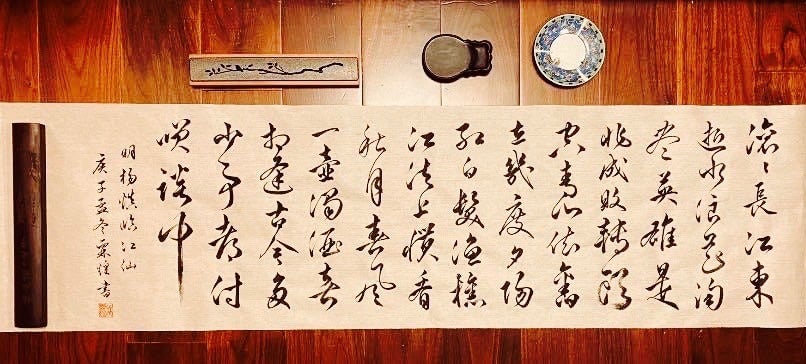 滚〻長江東
逝水浪花淘
尽英雄是
非成败轉頭
空青山依舊
在幾度夕陽
红白髮渔樵
江渚上惯看
秋月春風
一壶濁酒喜
相逢古今多
少事都付
笑談中
明楊慎临江仙
庚子孟冬書